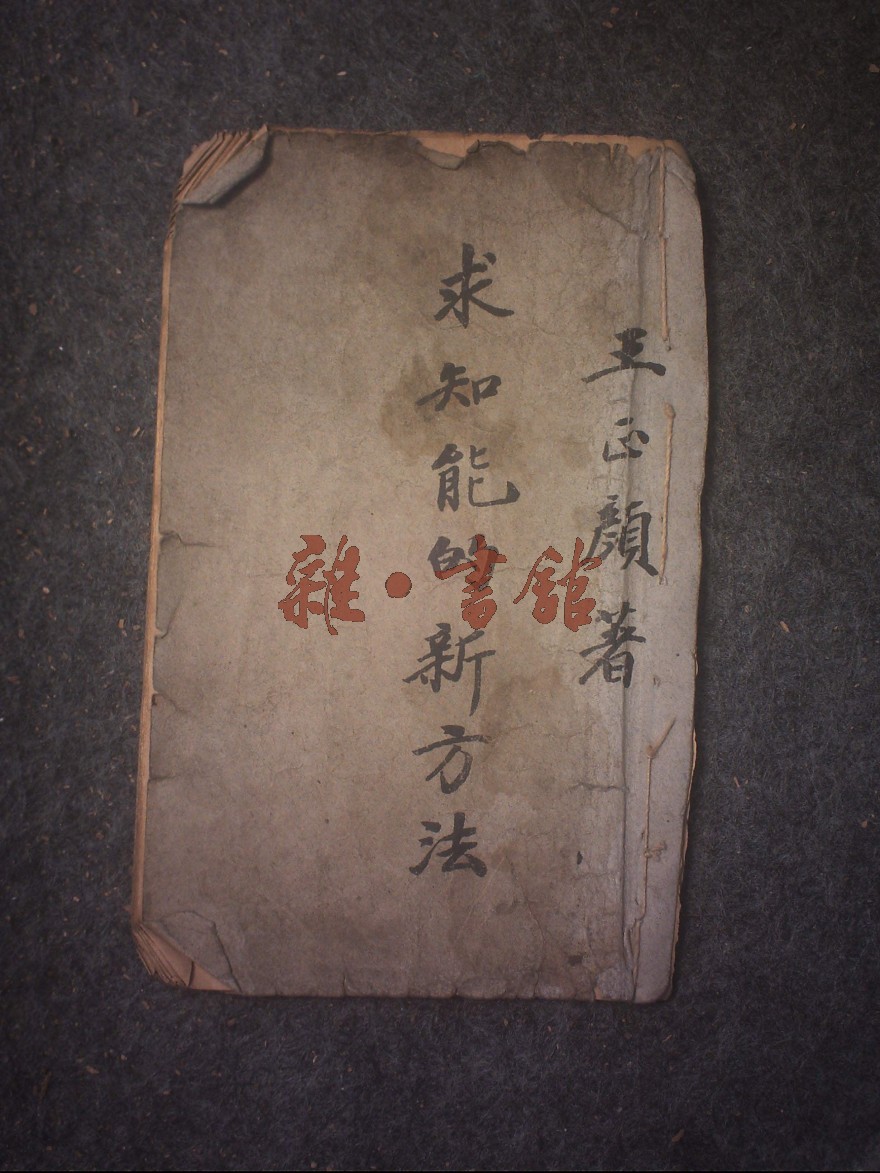 王正顏著
求知能的新方法
雜·書館